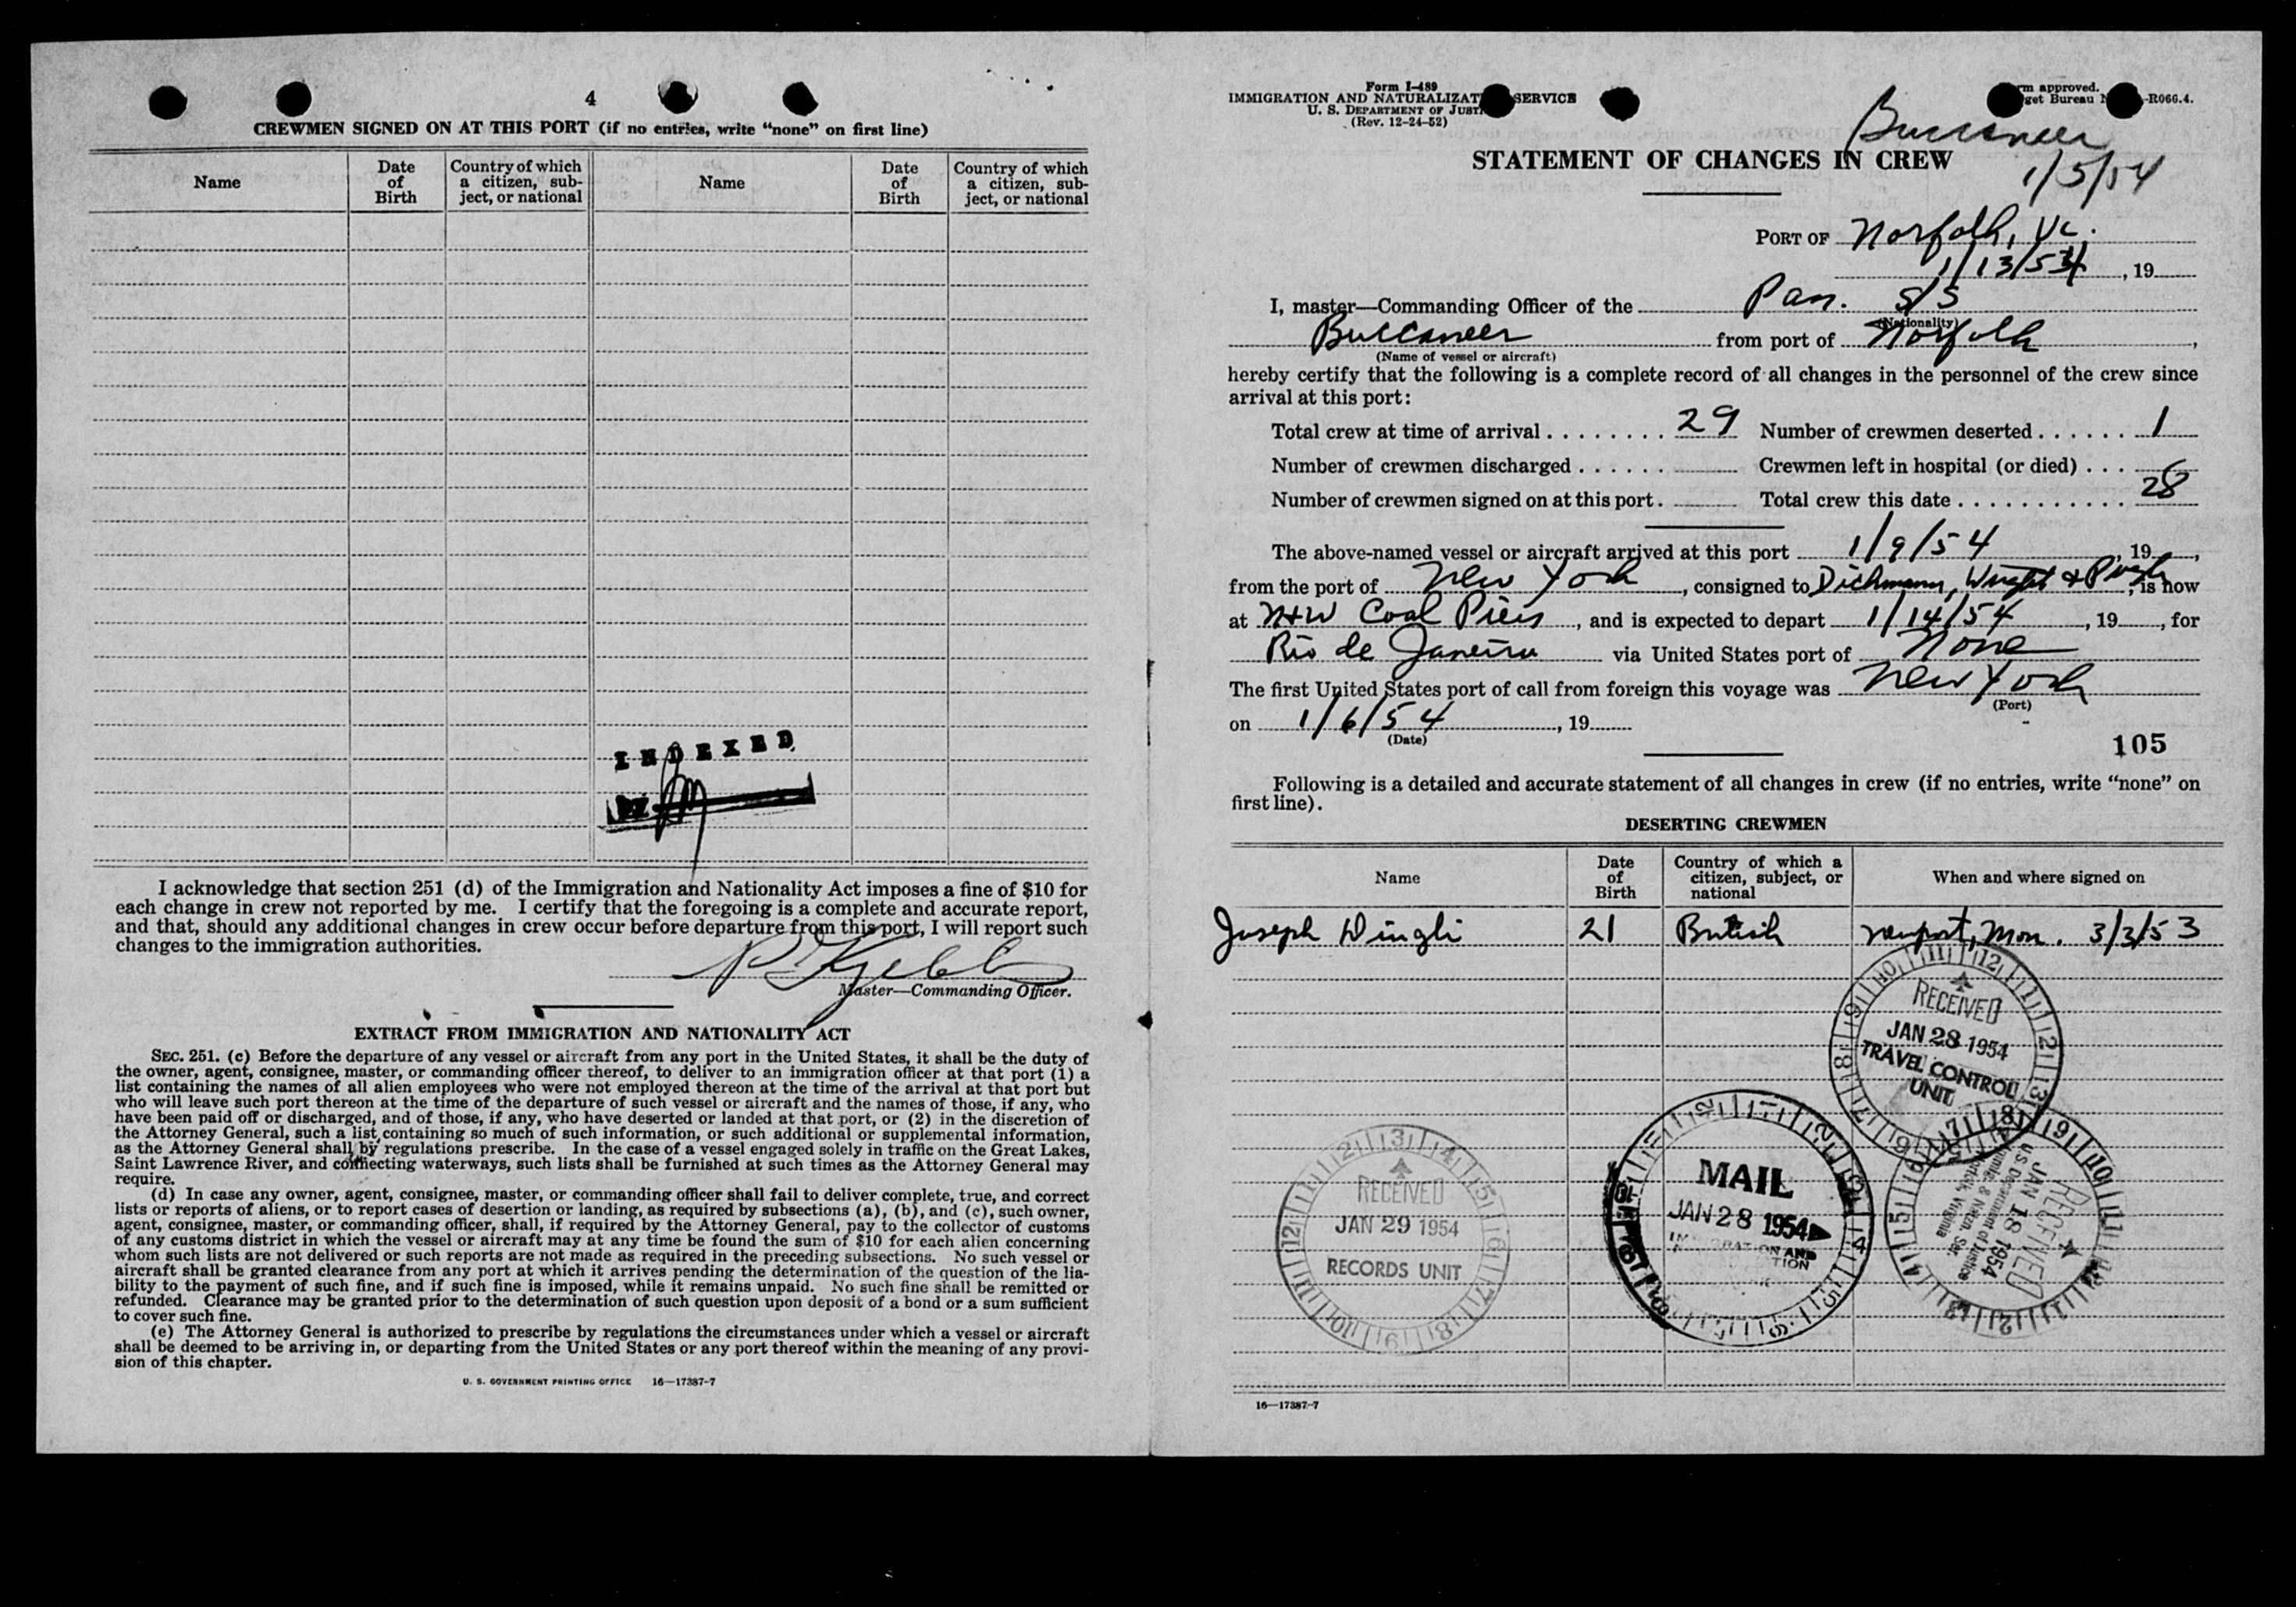 4
CREWMEN SIGNED ON AT THIS PORT (if no entries, write "none" on first line)
Name
Date of Birth
Country of which a citizen, subject, or national
Name
Date of Birth
Country of which a citizen, subject, or national
INDEXED
I acknowledge that section 251 (d) of the Immigration and Nationality Act imposes a fine of $10 for
each change in crew not reported by me. I certify that the foregoing is a complete and accurate report,
and that, should any additional changes in crew occur before departure from this port, I will report such
changes to the immigration authorities.
Master—Commanding Officer.
EXTRACT FROM IMMIGRATION AND NATIONALITY ACT
SEC. 251. (c) Before the departure of any vessel or aircraft from any port in the United States, it shall be the duty of
the owner, agent, consignee, master, or commanding officer thereof, to deliver to an immigration officer at that port (1) a
list containing the names of all alien employees who were not employed thereon at the time of the arrival at that port but
who will leave such port thereon at the time of the departure of such vessel or aircraft and the names of those, if any, who
have been paid off or discharged, and of those, if any, who have deserted or landed at that port, or (2) in the discretion of
the Attorney General, such a list containing so much of such information, or such additional or supplemental information,
as the Attorney General shall by regulations prescribe. In the case of a vessel engaged solely in traffic on the Great Lakes,
Saint Lawrence River, and connecting waterways, such lists shall be furnished at such times as the Attorney General may
require.
(d) In case any owner, agent, consignee, master, or commanding officer shall fail to deliver complete, true, and correct
lists or reports of aliens, or to report cases of desertion or landing, as required by subsections (a), (b), and (c), such owner,
agent, consignee, master, or commanding officer, shall, if required by the Attorney General, pay to the collector of customs
of any customs district in which the vessel or aircraft may at any time be found the sum of $10 for each alien concerning
whom such lists are not delivered or such reports are not made as required in the preceding subsections. No such vessel or
aircraft shall be granted clearance from any port at which it arrives pending the determination of the question of the lia-
bility to the payment of such fine, and if such fine is imposed, while it remains unpaid. No such fine shall be remitted or
refunded. Clearance may be granted prior to the determination of such question upon deposit of a bond or a sum sufficient
to cover such fine.
(e) The Attorney General is authorized to prescribe by regulations the circumstances under which a vessel or aircraft
shall be deemed to be arriving in, or departing from the United States or any port thereof within the meaning of any provi-
sion of this chapter.
U. S. GOVERNMENT PRINTING OFFICE 16—17387-7
Form I-489
IMMIGRATION AND NATURALIZAT SERVICE
U. S. DEPARTMENT OF JUST
(Rev. 12-24-52)
rm approved.
get Bureau -R066.4.
Buccaneer
1/5/54
STATEMENT OF CHANGES IN CREW
PORT OF Norfolk, Va.
1/13/54, 19
I, master—Commanding Officer of the Pan. S/S
(Nationality)
Buccaneer from port of Norfolk,
(Name of vessel or aircraft)
hereby certify that the following is a complete record of all changes in the personnel of the crew since
arrival at this port:
Total crew at time of arrival 29 Number of crewmen deserted 1
Number of crewmen discharged Crewmen left in hospital (or died)
Number of crewmen signed on at this port. Total crew this date 28
The above-named vessel or aircraft arrived at this port 1/9/54, 19,
from the port of New York, consigned to Dichmann, Wright & Pugh, is now
at N+W Coal Piers, and is expected to depart 1/14/54, 19, for
Rio de Janeiro via United States port of None
The first United States port of call from foreign this voyage was New York
(Port)
on 1/6/54, 19
(Date)
105
Following is a detailed and accurate statement of all changes in crew (if no entries, write "none" on
first line).
DESERTING CREWMEN
Name
Date of Birth
Country of which a citizen, subject, or national
When and where signed on
Joseph Dingli 21 British Newport, Mon. 3/3/53
RECEIVED
JAN 28 1954
TRAVEL CONTROL
UNIT
RECEIVED
JAN 29 1954
RECORDS UNIT
MAIL
JAN 28 1954
RECEIVED
JAN 18 1954
U S Department of Justice
Immig. & Natza. Ser.
Norfolk, Virginia
16—17387-7